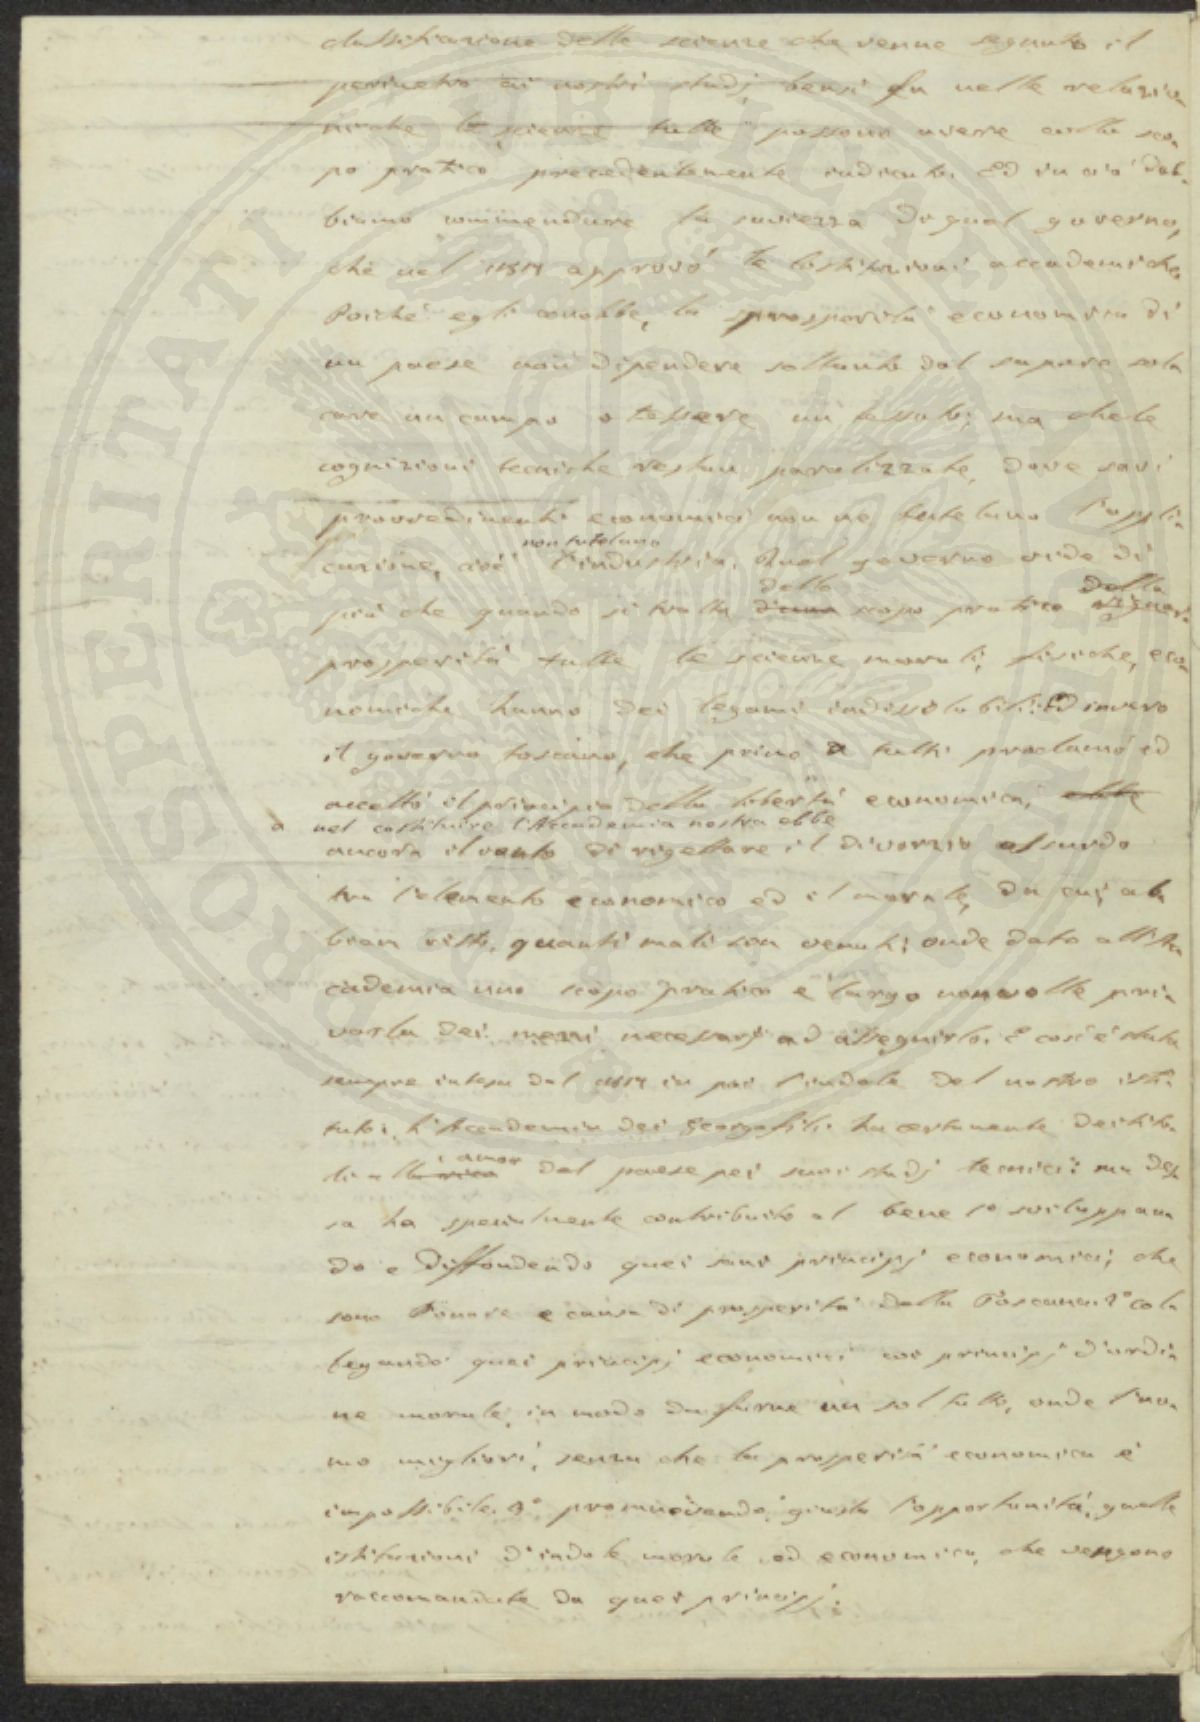 classificazione delle scienze che venne segnato il
perimetro ai nostri studj, bensì fu nelle relazio
niche le scienze tutte possono avere collo sco
po pratico precedentemente indicato. Ed in ciò dob
biamo commendare la saviezza di qual governo,
che nel 1817 approvò le Costituzioni accademiche
Poiché egli conobbe, la prosperità economica di
un paese non dipendere soltanto dal sapere sol
care un campo o tessere un tessuto; ma che le
cognizioni tecniche restan paralizzate, dove savi
provvedimenti economici non ne tutelano l'appli
non tutelano
cazione, cioè l'industria. Qual governo vide di
dello della
più che quando si tratta scopo pratico
prosperità tutte le scienze morali, fisiche, eco
nomiche hanno dei legami indissolubili. Ed invero
il governo toscano, che primo a tutti proclamò ed
accettò il principio della libertà economica, ebbe
a nel costituire l'Accademia nostra ebbe
ancora il vanto di rigettare il divorzio assurdo
tra l'elemento economico ed il morale, da cui ab
biam visto, quanti mali son venuti; onde dato all'Ac
cademia uno scopo pratico e largo non volle pri
varla dei mezzi necessarj ad asseguirlo. E così è stata
sempre intesa dal 1817 in poi l'indole del nostro isti
tuto. L'Accademia dei Georgofili ha certamente
amor
del paese pei suoi studj tecnici: ma des
sa ha specialmente contribuito al bene 1° sviluppan
do e diffondendo quei sani principj economici, che
sono l'onore e causa di prosperità della Toscana: 2° col
legando quei principj economici coi principj d'ordi
ne morale, in modo da farne un sol tutto, onde l'uo
mo migliori, senza che la prosperità economica è
impossibile. 3° promuovendo, giusta l'opportunità, quelle
istituzioni d'indole morale ed economica, che vengono
raccomandate da quei principj.
PROSPERITATI PUBLICAE AUGENDAE